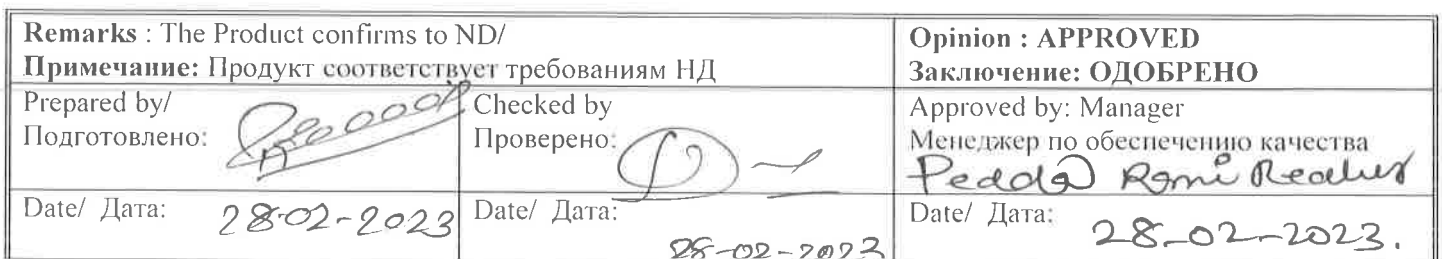 Remarks : The Product confirms to ND/
Примечание: Продукт соответствует требованиям НД
Opinion : APPROVED
Заключение: ОДОБРЕНО
Prepared by/
Подготовлено:
Checked by
Проверено:
Approved by: Manager
Менеджер по обеспечению качества
Pedda Rami
Date/ Дата: 28-02-2023
Date/ Дата: 28-02-2023
Date/ Дата: 28-02-2023.